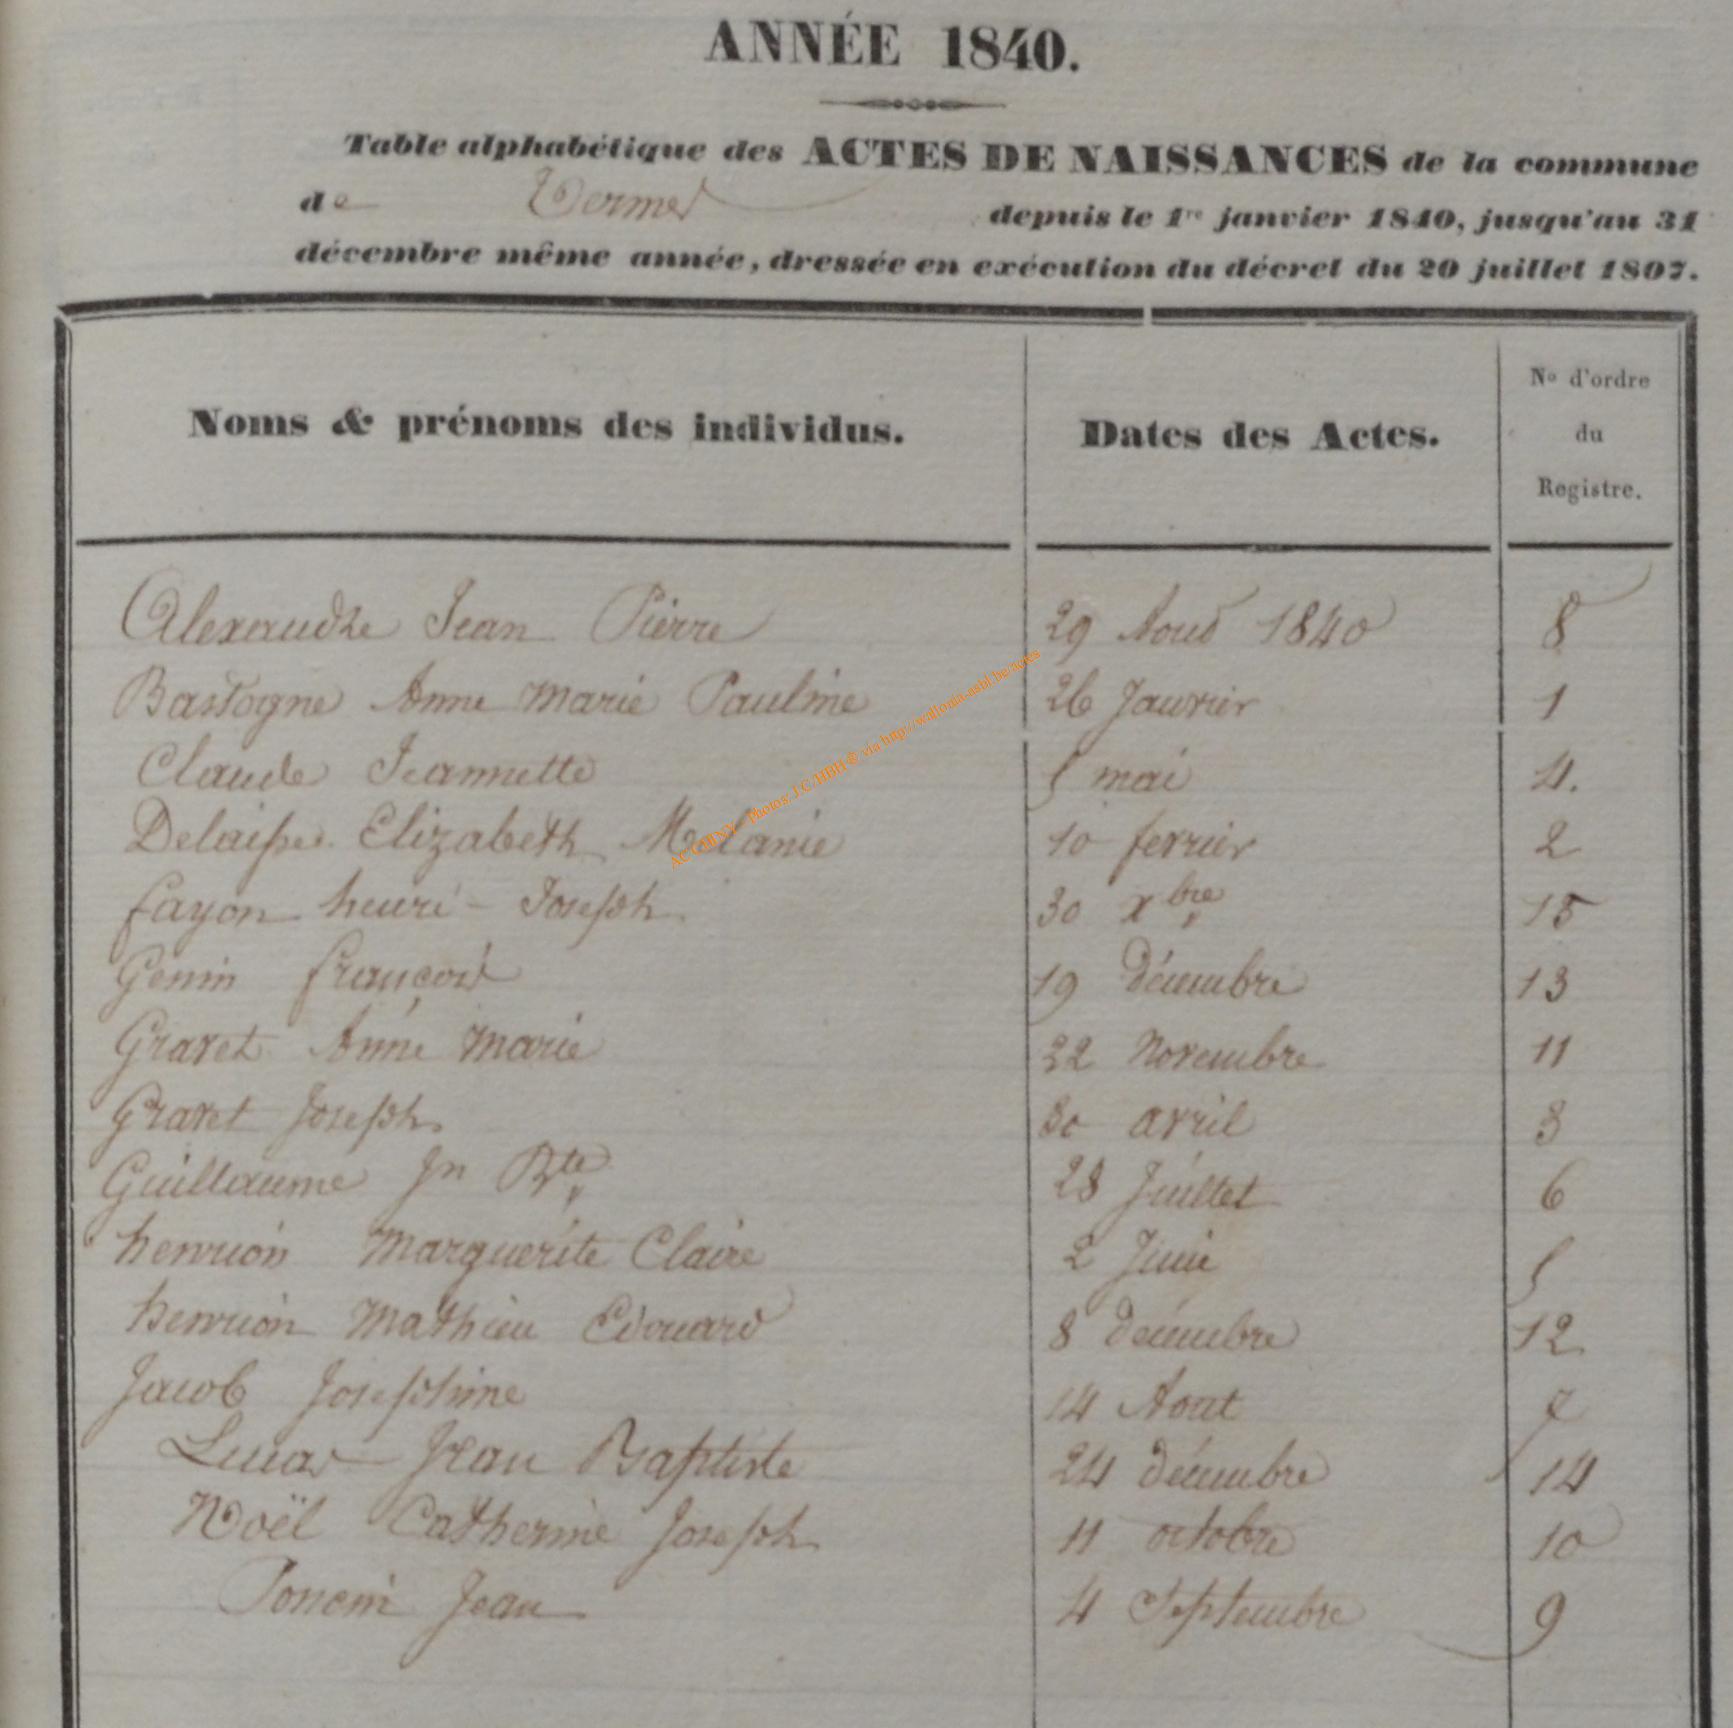 ANNÉE 1840.
Table alphabétique des ACTES DE NAISSANCES de la commune
de Termes depuis le 1re janvier 1840, jusqu'au 31
décembre même année, dressée en exécution du décret du 20 juillet 1807.
Noms & prénoms des individus. Dates des Actes. No d'ordre du Registre.
Alexandre Jean Pierre 29 Aout 1840 8
Bastogne Anne Marie Pauline 26 Janvier 1
Claude Jeannette 5 mai 4.
Delaisse. Elizabeth Melanie 10 fevrier 2
fayon henri - Joseph 30 xbre 15
Genin françois 19 décembre 13
Gravet Anne Marie 22 Novembre 11
Gravet Joseph 30 avril 3
Guillaume Jn Bte 28 Juillet 6
henrion Marguerite Claire 2 Juin 5
henrion Mathieu Edouard 8 decembre 12
Jacob Josephine 14 Aout 7
Lucas Jean Baptiste 24 décembre 14
Noël Catherine Joseph 11 octobre 10
Poncin Jean 4 Septembre 9
AC CHINY - Photos: J.C. HBH @ via http://wallonia-asbl.be/actes